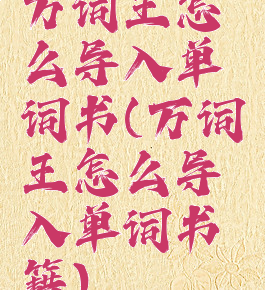 万词王怎
么导入单
词书(万词
王怎么导
入单词书
籍)